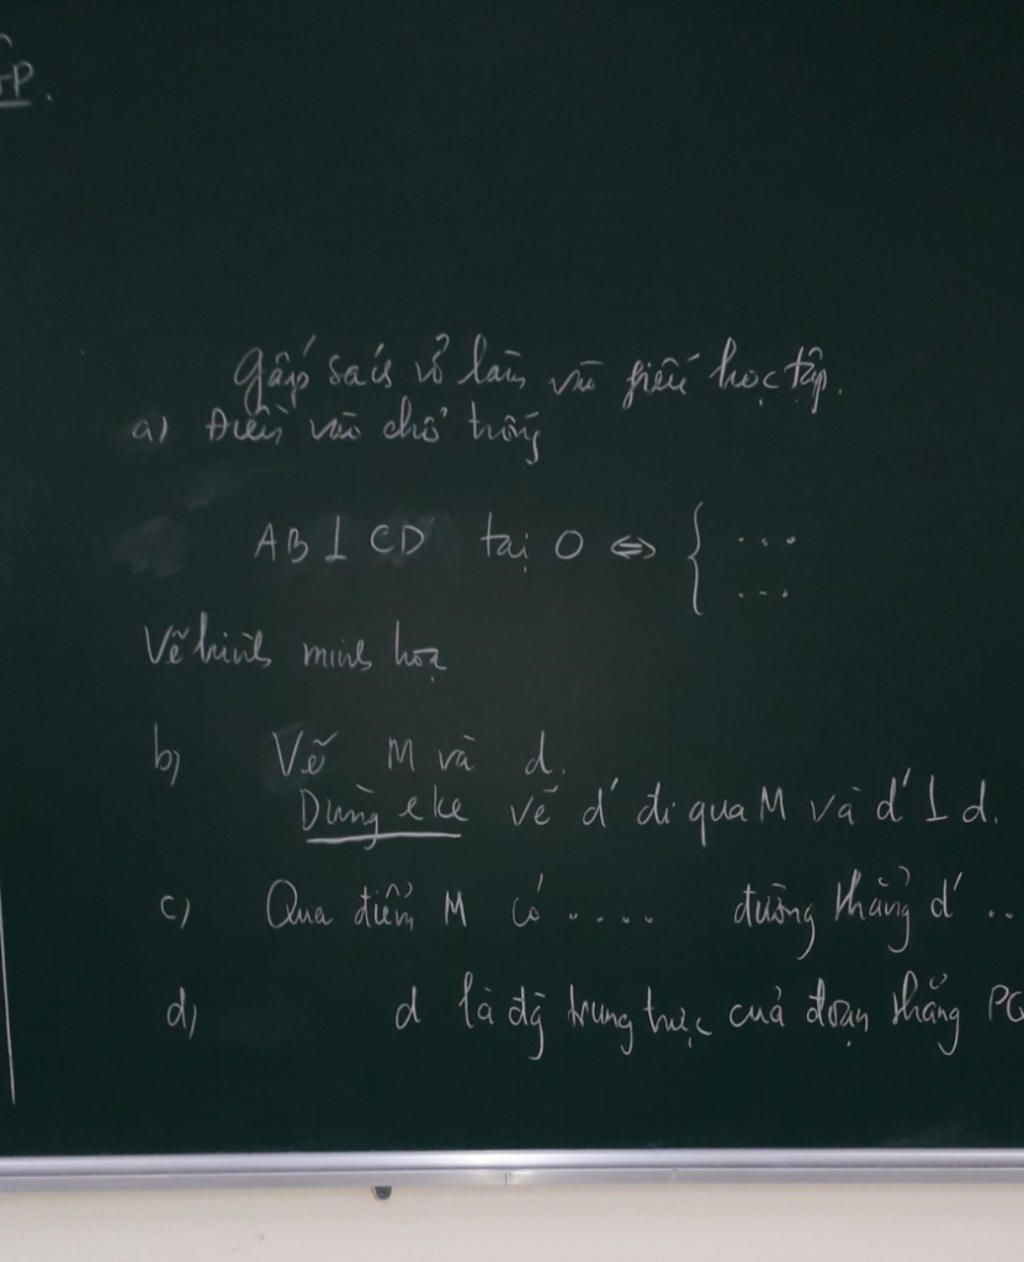 GP.
Gấp sách vở làm vào phiếu học tập.
a) Điền vào chỗ trống
AB ⊥ CD tại O ⇔ { ...
...
Vẽ hình minh hoạ
b) Vẽ M và d.
Dùng eke vẽ d' đi qua M và d' ⊥ d.
c) Qua điểm M có .... đường thẳng d' ..
d) d là đg trung trực của đoạn thẳng PQ